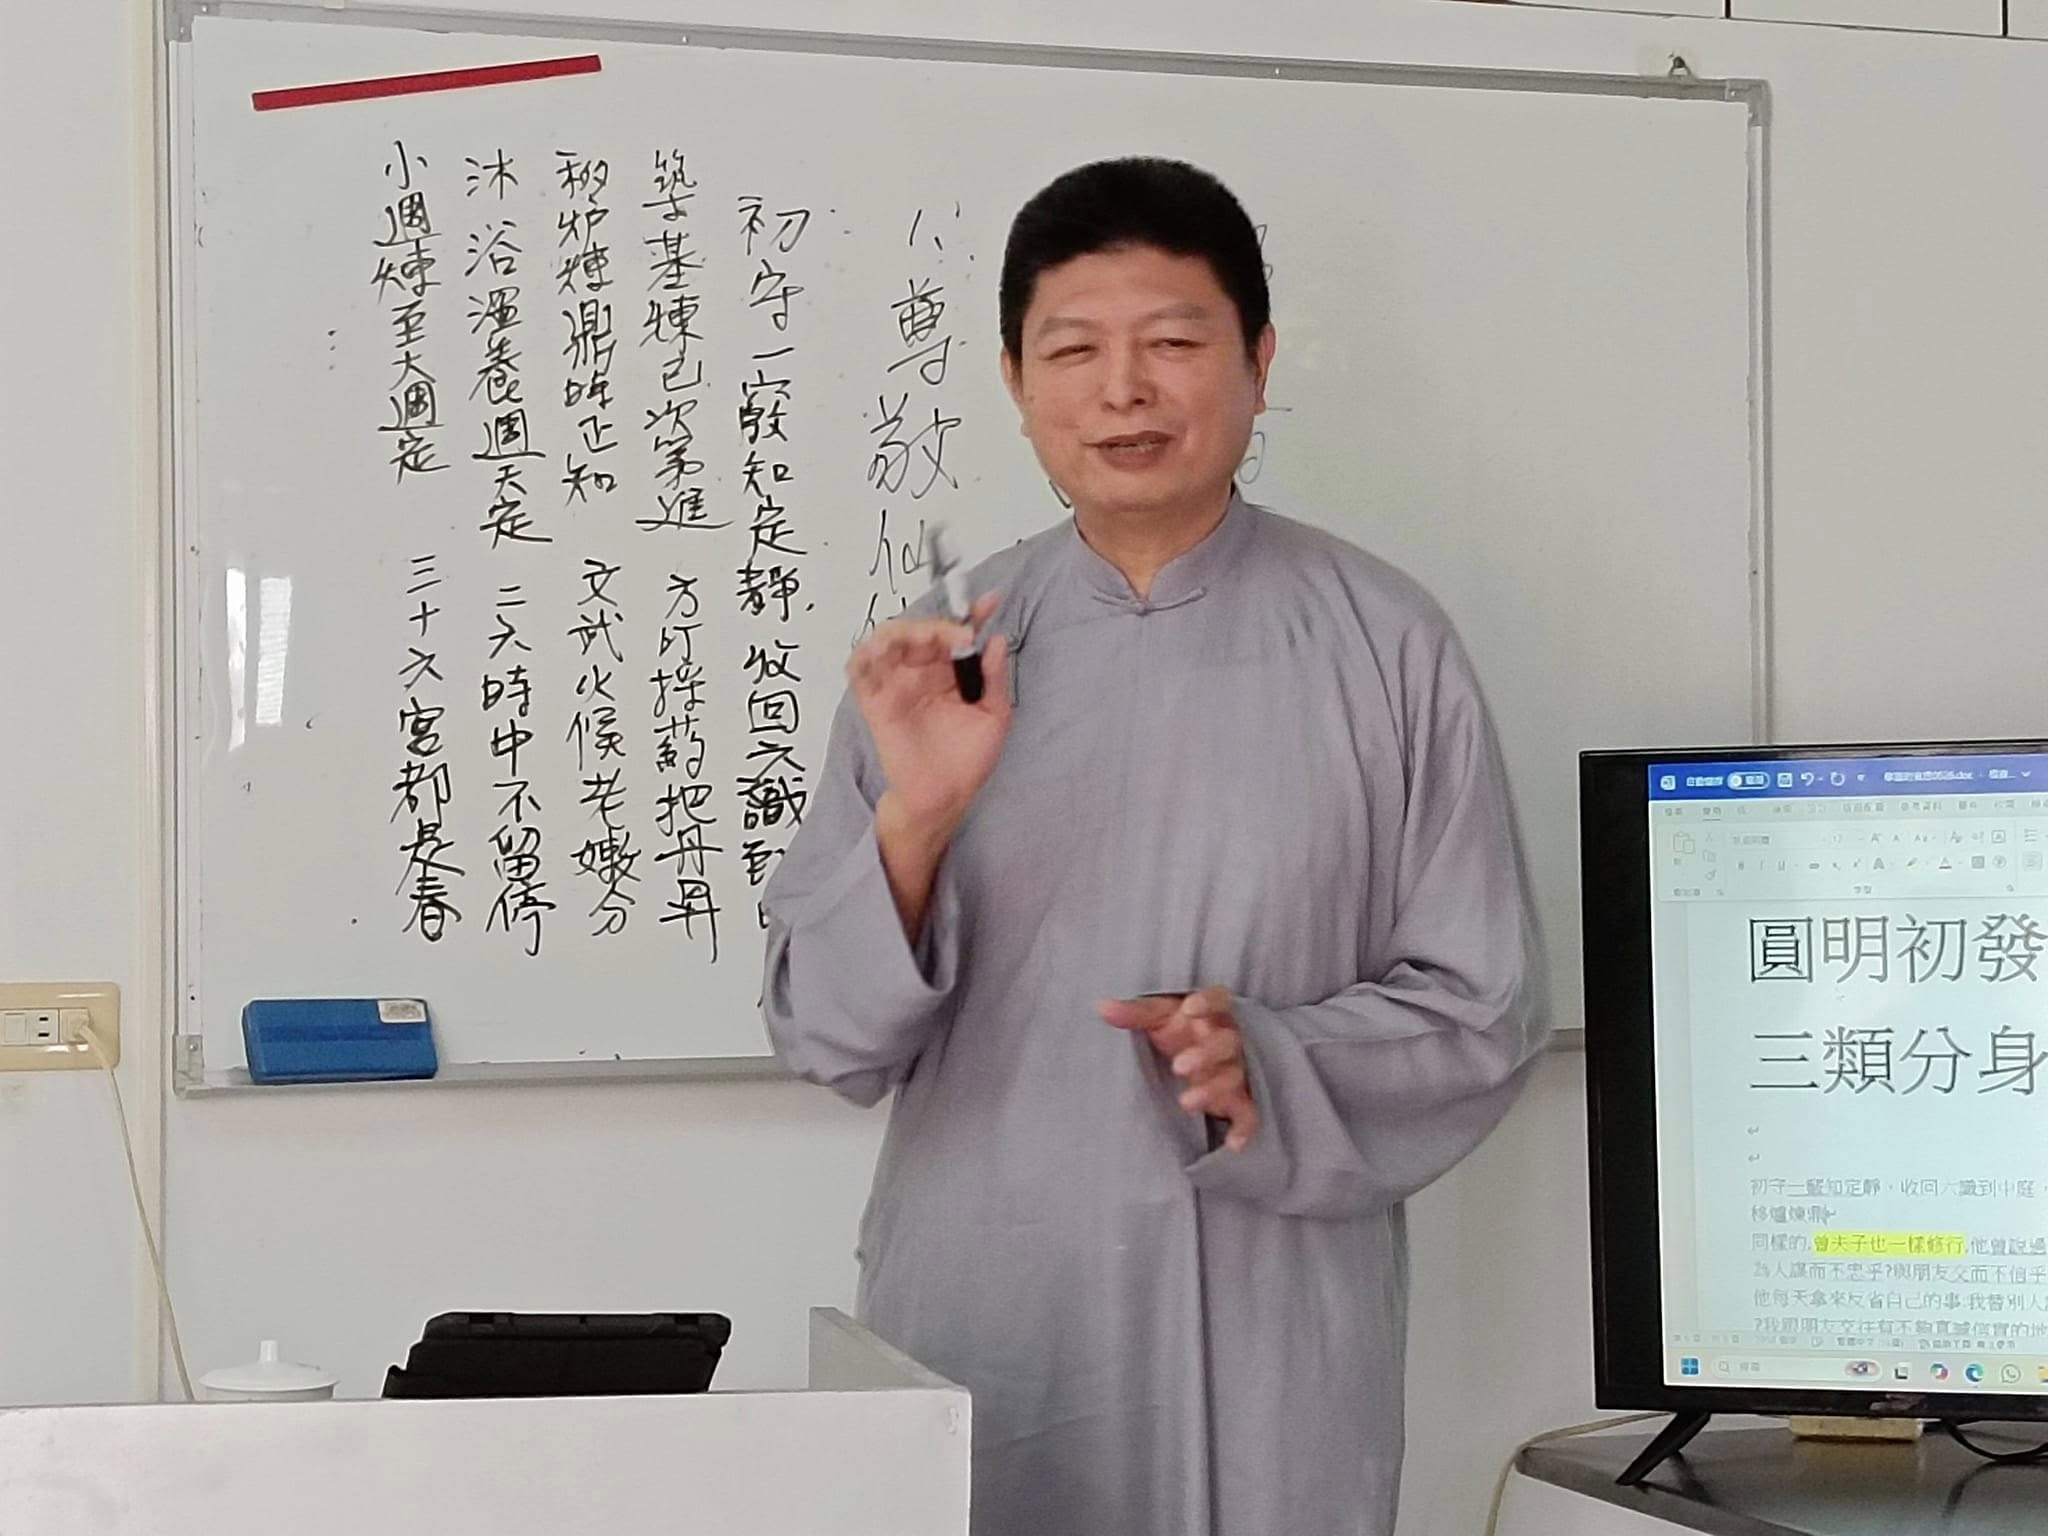 尊敬仙
初守一竅知定靜 收回六識到
築基煉己次第進 方可採藥把丹昇
移炉煉鼎時正知 文武火候老嫩分
沐浴溫養週天定 二六時中不留停
小週煉至大週定 三十六宮都是春
圓明初發
三類分身
初守一竅知定靜，收回六識到中庭，
移爐煉鼎
同樣的,曾夫子也一樣修行,他曾說過
為人謀而不忠乎?與朋友交而不信乎
他每天拿來反省自己的事:我替別人
?我跟朋友交往有不夠真誠信實的地